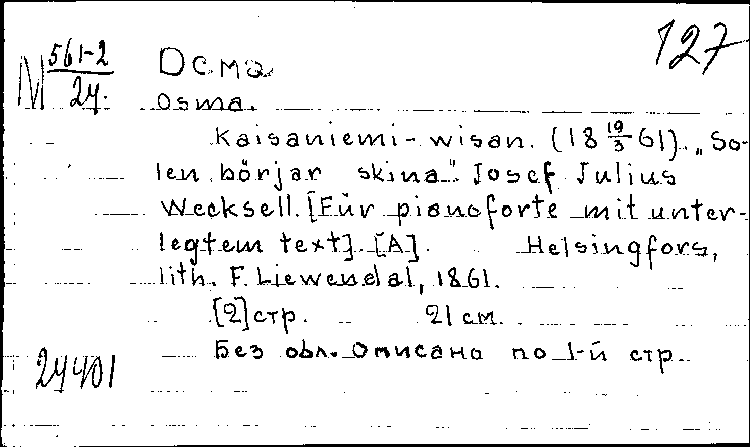 127
М 561-2
24.
Осма
Osma.
Kaisaniemi-wisan. (18 19/3 61). „So-
len börjar skina". Josef Julius
Wecksell. [Für pianoforte mit unter-
legtem text]. [A]. Helsingfors,
lith. F. Liewendal, 1861.
[2] стр. 21 см.
Без обл. Описано по 1-й стр.
24401